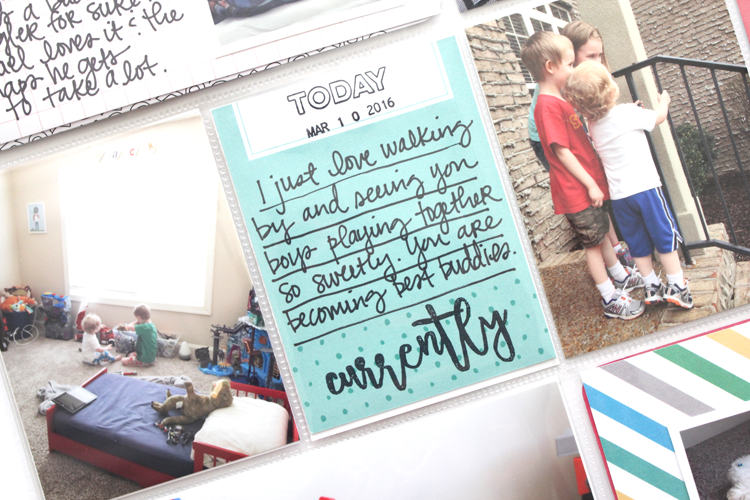 s a
er for
loves it & the
he gets
to take a lot.
TODAY
MAR 10 2016
I just love walking
by and seeing you
boys playing together
so sweetly. You are
becoming best buddies.
currently